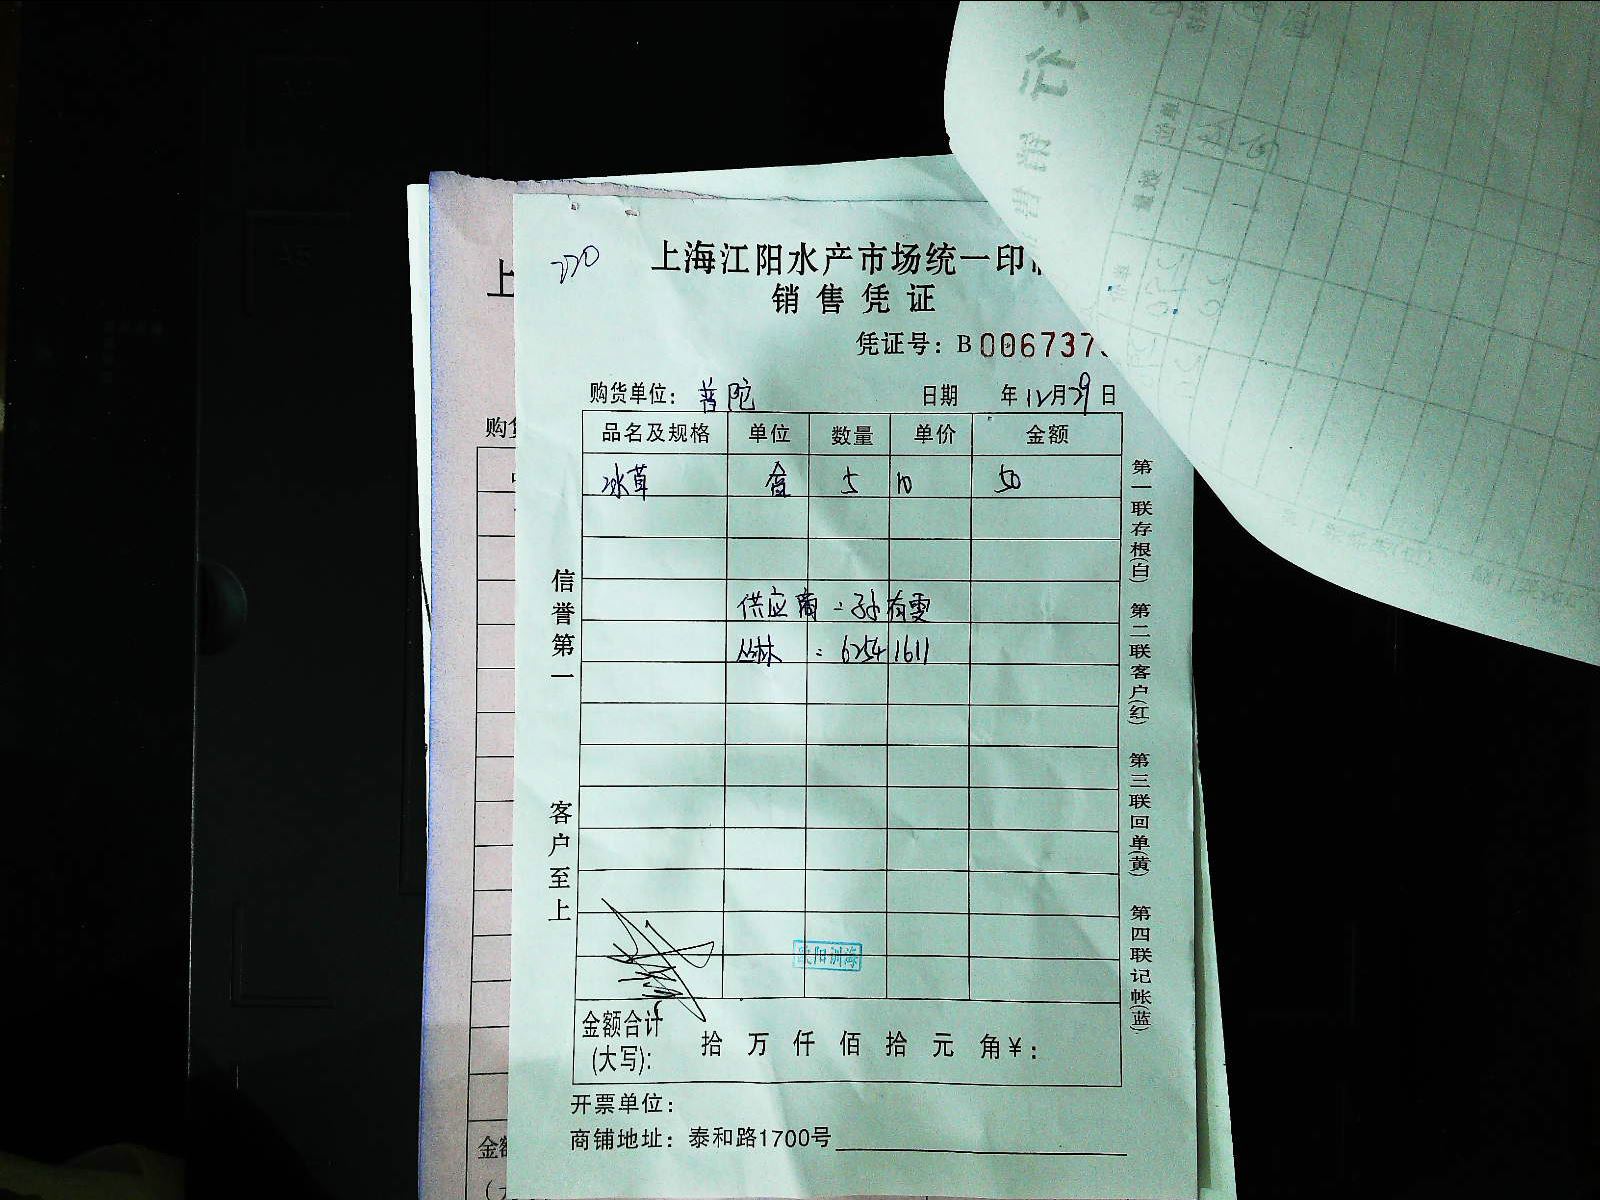 220
上海江阳水产市场统一印
销售凭证
凭证号：B 006737
购货单位：普陀 日期 年12月29日
品名及规格 单位 数量 单价 金额
冰茸 盒 5 10 50
供应商：孙有雯
丛林：62541611
信誉第一
客户至上
第一联存根(白) 第二联客户(红) 第三联回单(黄) 第四联记帐(蓝)
欧阳训海
金额合计(大写)： 拾 万 仟 佰 拾 元 角 ¥：
开票单位：
商铺地址：泰和路1700号
上
购货
金额